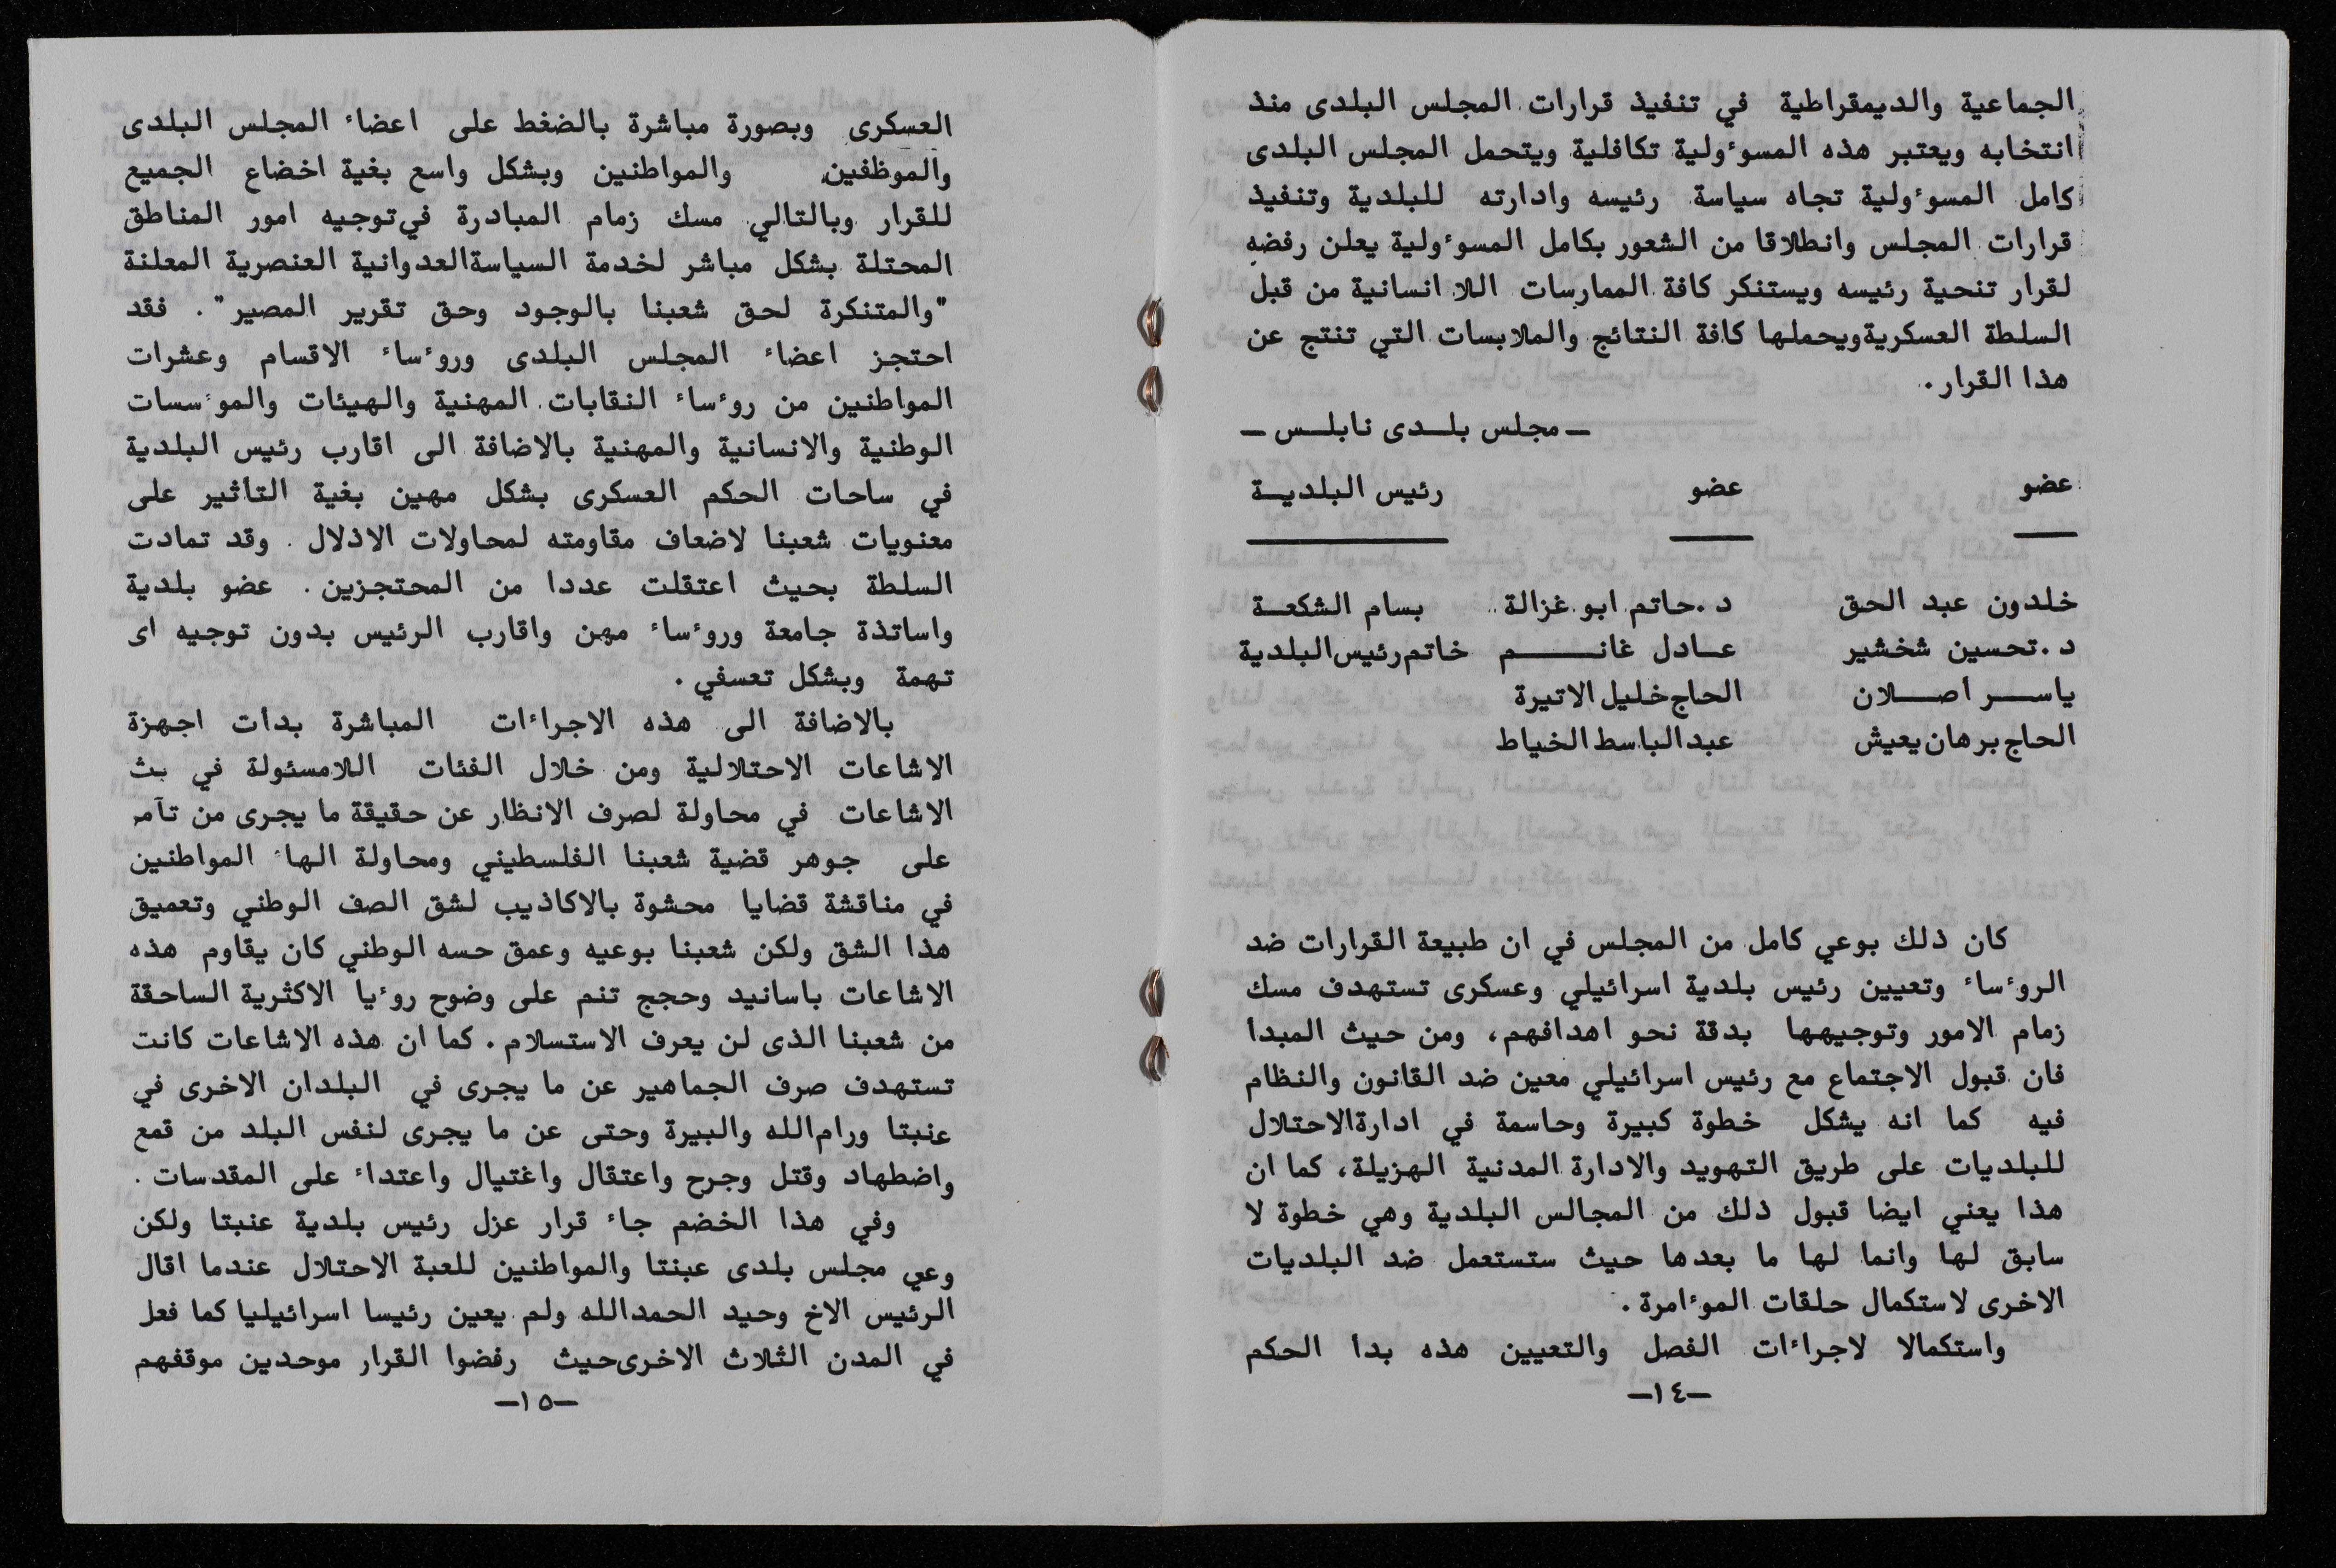 الجماعية والديمقراطية في تنفيذ قرارات المجلس البلدى منذ
انتخابه ويعتبر هذه المسوءولية تكافلية ويتحمل المجلس البلدى
كامل المسوءولية تجاه سياسة رئيسه وادارته للبلدية وتنفيذ
قرارات المجلس وانطلاقا من الشعور بكامل المسوءولية يعلن رفضه
لقرار تنحية رئيسه ويستنكر كافة الممارسات اللا انسانية من قبل
السلطة العسكرية ويحملها كافة النتائج والملابسات التي تنتج عن
هذا القرار.
ـ مجلس بلـدى نابلـس ـ
عضو عضو رئيس البلديـة
خلدون عبد الحق د.حاتم ابو غزالة بسام الشكعـة
د.تحسين شخشير عـادل غانـــم خاتم رئيس البلدية
ياسـر أصـلان الحاج خليل الاتيرة
الحاج برهان يعيش عبد الباسط الخياط
كان ذلك بوعي كامل من المجلس في ان طبيعة القرارات ضد
الروءساء وتعيين رئيس بلدية اسرائيلي وعسكرى تستهدف مسك
زمام الامور وتوجيهها بدقة نحو اهدافهم، ومن حيث المبدأ
فان قبول الاجتماع مع رئيس اسرائيلي معين ضد القانون والنظام
فيه كما انه يشكل خطوة كبيرة وحاسمة في ادارة الاحتلال
للبلديات على طريق التهويد والادارة المدنية الهزيلة، كما ان
هذا يعني ايضا قبول ذلك من المجالس البلدية وهي خطوة لا
سابق لها وانما لها ما بعدها حيث ستستعمل ضد البلديات
الاخرى لاستكمال حلقات الموءامرة.
واستكمالا لاجراءات الفصل والتعيين هذه بدأ الحكم
ـ١٤ـ
العسكرى وبصورة مباشرة بالضغط على اعضاء المجلس البلدى
والموظفين والمواطنين وبشكل واسع بغية اخضاع الجميع
للقرار وبالتالي مسك زمام المبادرة في توجيه امور المناطق
المحتلة بشكل مباشر لخدمة السياسة العدوانية العنصرية المعلنة
"والمتنكرة لحق شعبنا بالوجود وحق تقرير المصير". فقد
احتجز اعضاء المجلس البلدى وروءساء الاقسام وعشرات
المواطنين من روءساء النقابات المهنية والهيئات والموءسسات
الوطنية والانسانية والمهنية بالاضافة الى اقارب رئيس البلدية
في ساحات الحكم العسكرى بشكل مهين بغية التأثير على
معنويات شعبنا لاضعاف مقاومته لمحاولات الاذلال. وقد تمادت
السلطة بحيث اعتقلت عددا من المحتجزين. عضو بلدية
واساتذة جامعة وروءساء مهن واقارب الرئيس بدون توجيه اى
تهمة وبشكل تعسفي.
بالاضافة الى هذه الاجراءات المباشرة بدأت اجهزة
الاشاعات الاحتلالية ومن خلال الفئات اللامسئولة في بث
الاشاعات في محاولة لصرف الانظار عن حقيقة ما يجرى من تآمر
على جوهر قضية شعبنا الفلسطيني ومحاولة الهاء المواطنين
في مناقشة قضايا محشوة بالاكاذيب لشق الصف الوطني وتعميق
هذا الشق ولكن شعبنا بوعيه وعمق حسه الوطني كان يقاوم هذه
الاشاعات باسانيد وحجج تنم على وضوح روءيا الاكثرية الساحقة
من شعبنا الذى لن يعرف الاستسلام. كما ان هذه الاشاعات كانت
تستهدف صرف الجماهير عن ما يجرى في البلدان الاخرى في
عنبتا ورام الله والبيرة وحتى عن ما يجرى لنفس البلد من قمع
واضطهاد وقتل وجرح واعتقال واغتيال واعتداء على المقدسات.
وفي هذا الخضم جاء قرار عزل رئيس بلدية عنبتا ولكن
وعي مجلس بلدى عبنتا والمواطنين للعبة الاحتلال عندما اقال
الرئيس الاخ وحيد الحمدالله ولم يعين رئيسا اسرائيليا كما فعل
في المدن الثلاث الاخرى حيث رفضوا القرار موحدين موقفهم
ـ١٥ـ